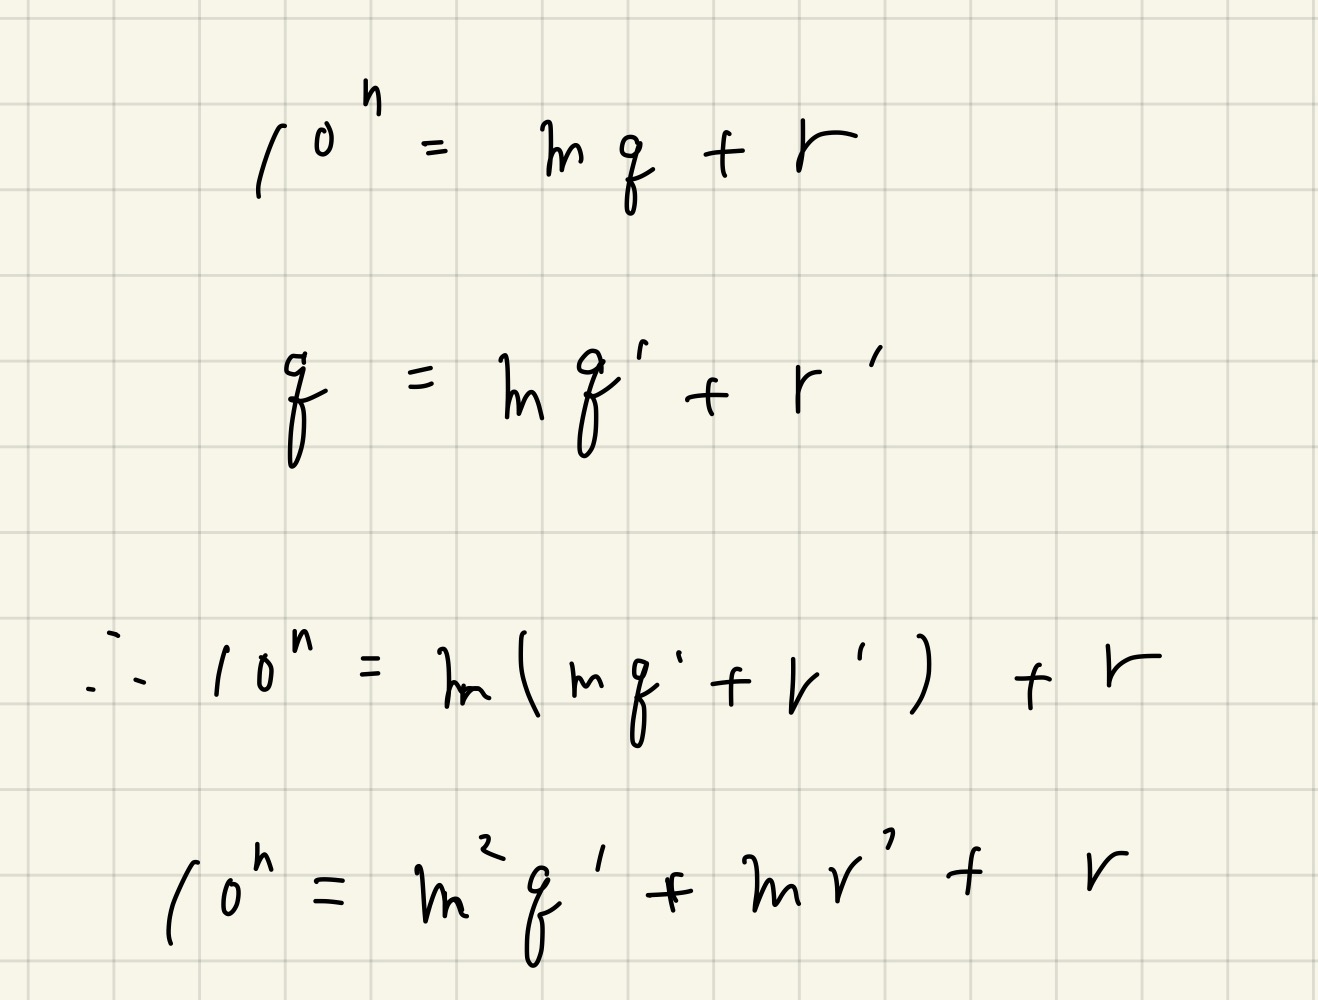 10ⁿ = mq + r
q = mq' + r'
∴ 10ⁿ = m(mq' + r') + r
10ⁿ = m²q' + mr' + r